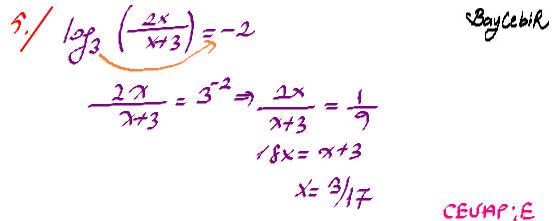 5./ log₃ (2x/x+3) = -2
BayCebiR
2x/x+3 = 3⁻² ⇒ 2x/x+3 = 1/9
18x = x+3
x = 3/17
CEVAP: E